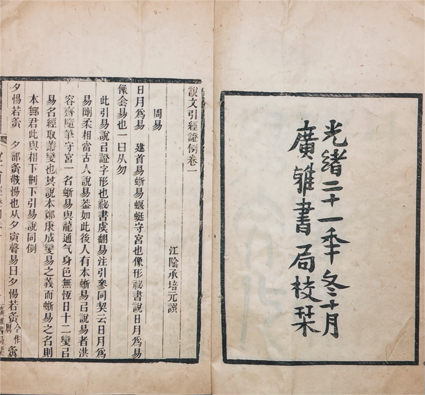 光緒二十一秊冬十月
廣雅書局校栞
說文引經證例卷一
江陰承培元譔
周易
日月爲易 建首易蜥易蝘蜓守宮也像形祕書說日月爲易
像侌易也一曰从勿
此引易說㠯證字形也祕書虞翻易注引參同契云日月爲
易剛柔相當古人說易葢如此後人有本蜥易㠯說易者洪
容齋隨筆守宮一名蜥易與龍通气身色無恆日十二變㠯
易名經取善變也其說本鄭康成變易之義而蜥易之名則
本鄦君此與相下刪下引易說同例
夕惕若夤 夕部夤敬惕也从夕寅聲易曰夕惕若夤 今作